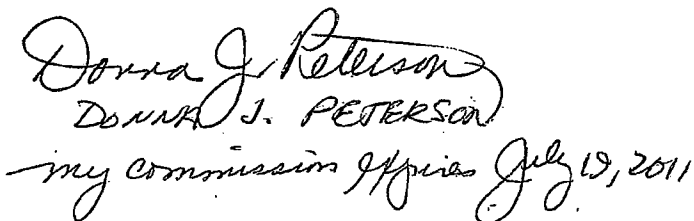 Donna J. Peterson
DONNA J. PETERSON
my commission expires July 19, 2011